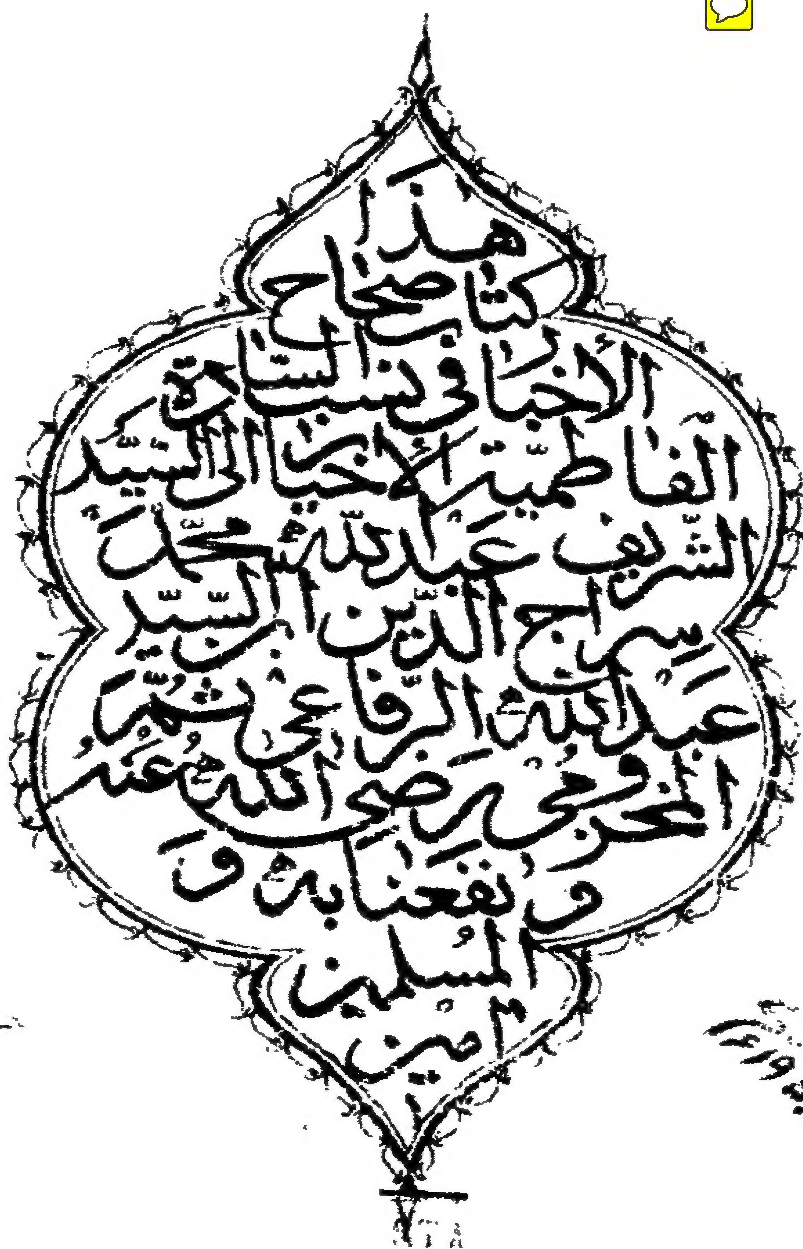 هٰذَا
كِتَابُ صِحَاحِ
الأَخْبَارِ فِي نَسَبِ السَّادَةِ
الْفَاطِمِيَّةِ الأَخْيَارِ الى السَّيِّد
الشَّرِيفِ عَبْدِ اللهِ مُحَمَّدَ
سِرَاجِ الدِّينِ ابْنِ السَّيِّدِ
عَبْدِ اللهِ الرِّفَاعِي ثُمَّ
الْمَخْزُومِي رَضِيَ اللهُ عَنْهُ
وَ نَفَعَنَا بِهِ وَ
الْمُسْلِمِينَ
امين